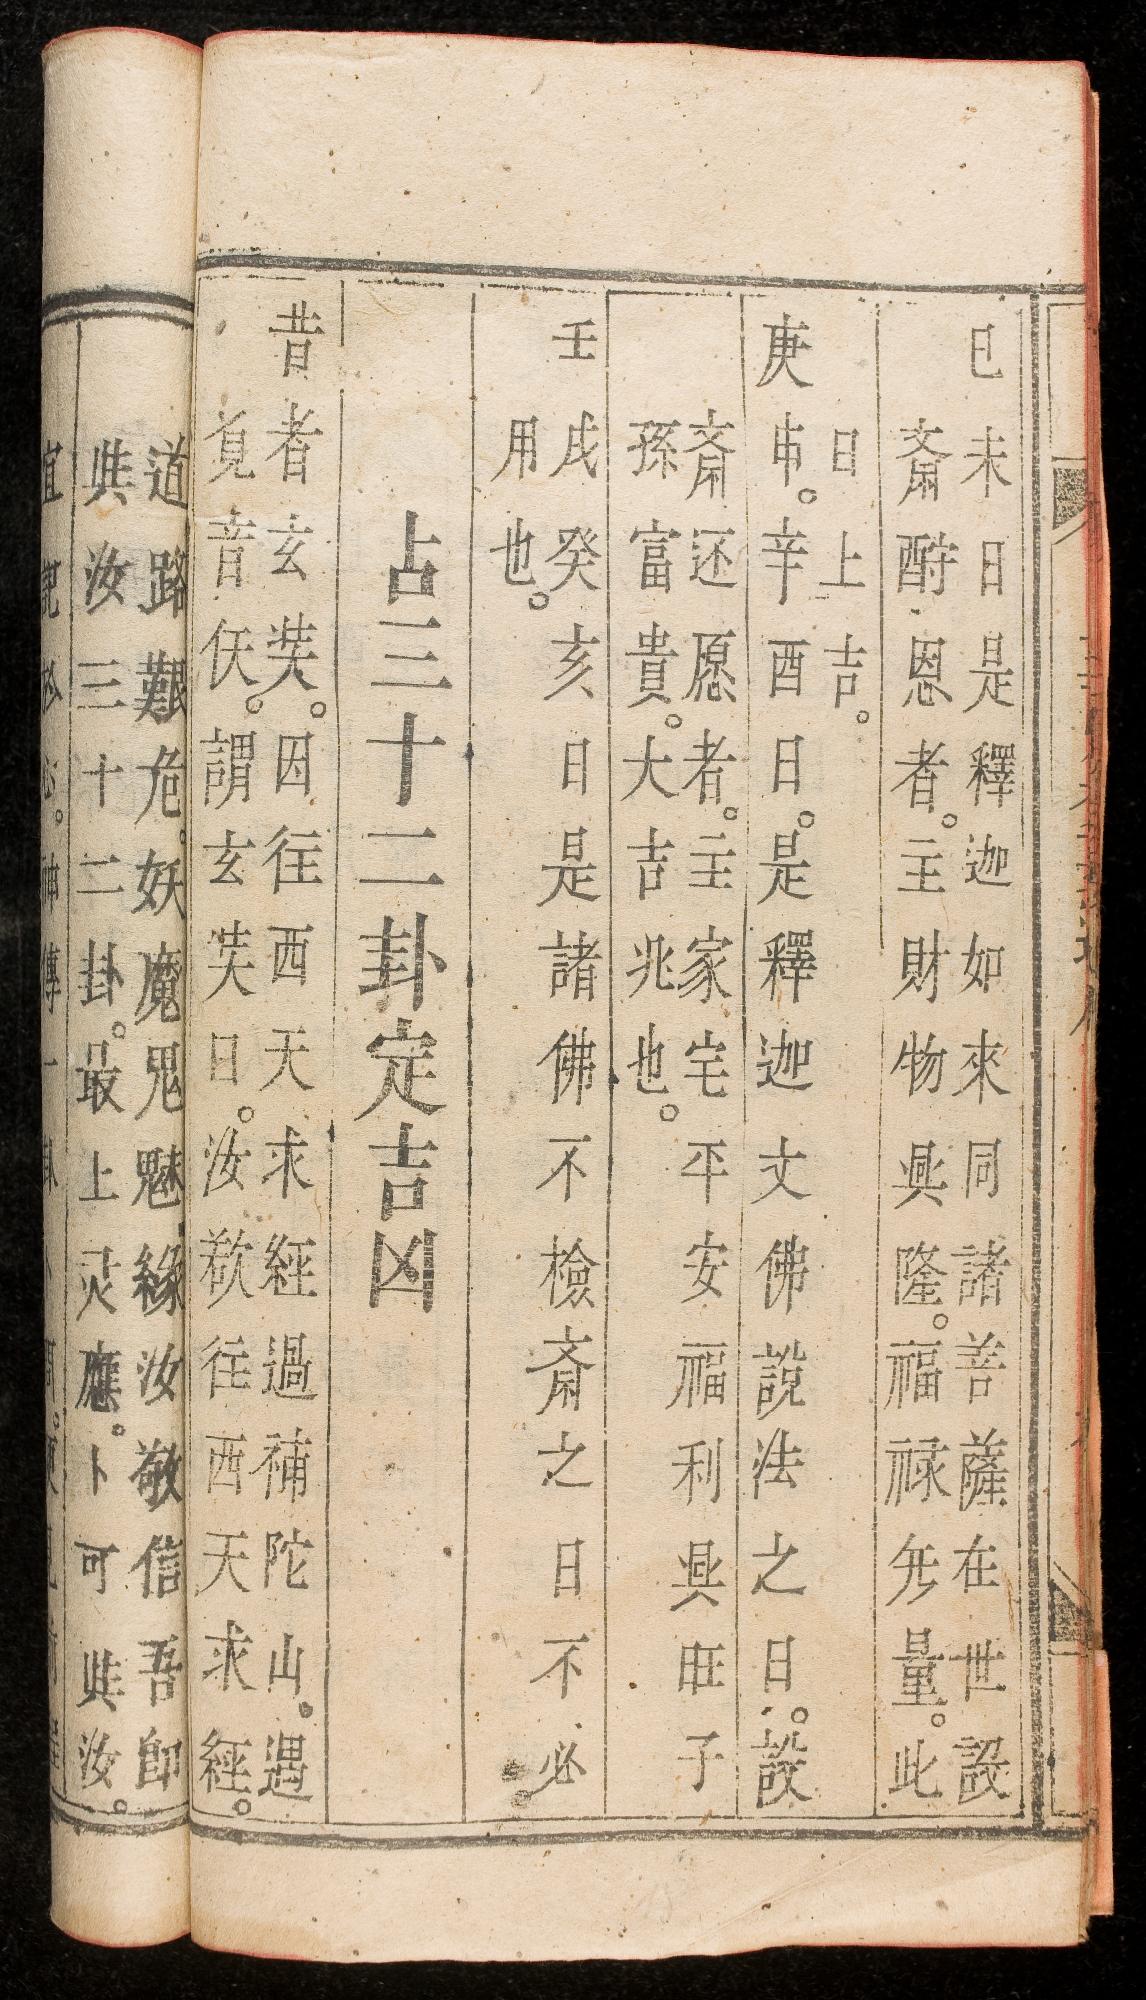 已未日是釋迦如來同諸善薩在世設
斎酧恩者。主財物興隆。福禄旡量。此
日上吉。
庚申。辛酉日。是釋迦文佛說法之日。設
斎还愿者。主家宅平安福利興旺子
孫富貴。大吉兆也。
壬戌癸亥日是諸佛不檢斎之日不必
用也。
占三十二卦定吉凶
昔者玄奘。因往西天求經過補陀山。遇
覔音佅。謂玄奘曰。汝欲往西天求經。
道路艱危。妖魔鬼魅緣汝敬信吾即
與汝三十二卦。最上灵應。卜可與汝。